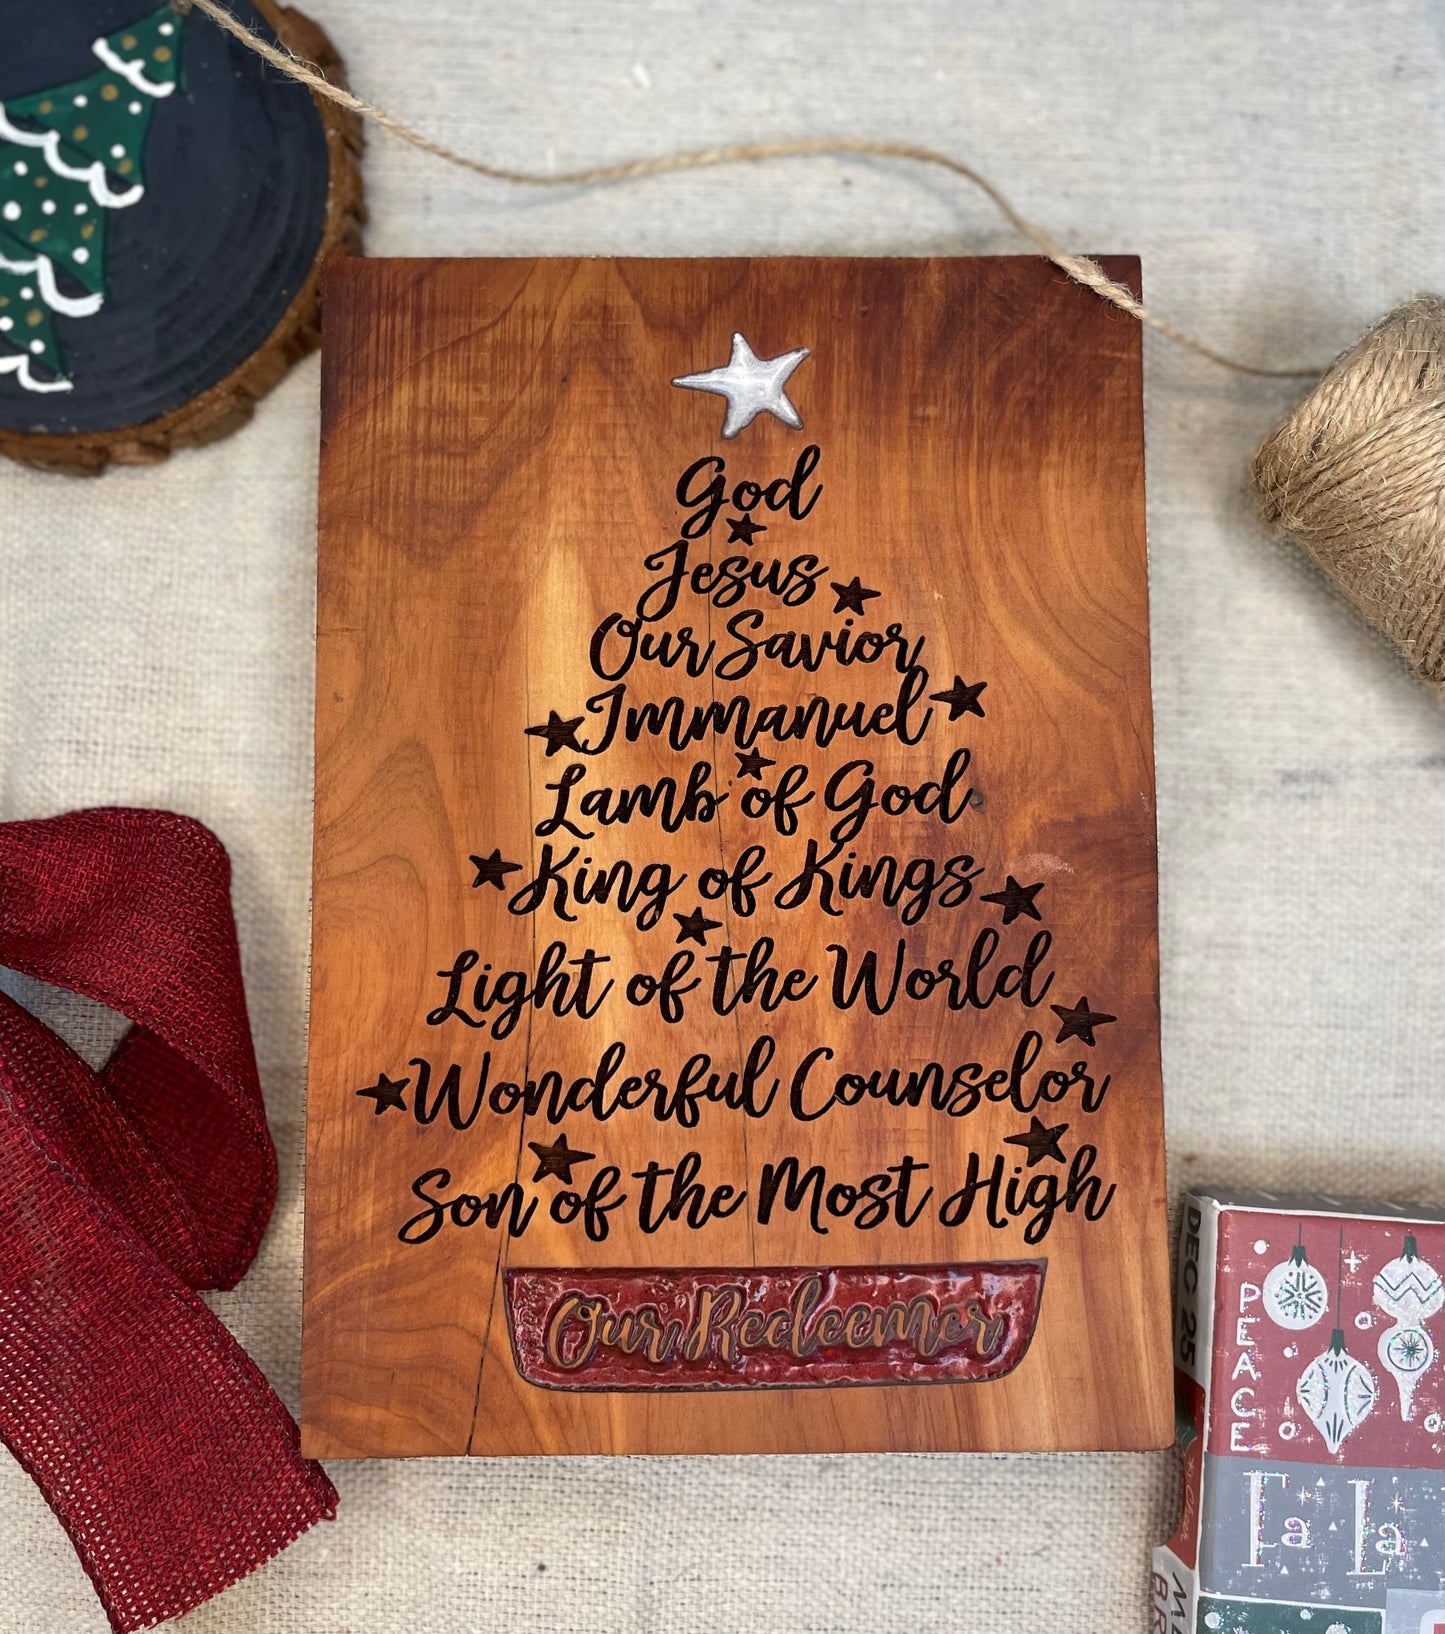 God
Jesus
Our Savior
Immanuel
Lamb of God
King of Kings
Light of the World
Wonderful Counselor
Son of the Most High
Our Redeemer
DEC 25
PEACE
Fa La